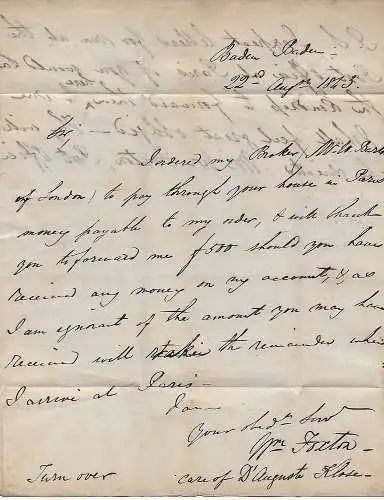 Baden Baden
22nd Augst 1843.
Sir
I ordered my Broker, Mr W.
of London) to pay through your house in Paris
money payable to my order, & will thank
you to forward me £500 should you have
received any money on my account, & as
I am ignorant of the amount you may have
received will take the remainder when
I arrive at Paris—
I am
Your obedt Servt
Wm Foxton—
Turn over care of Dr Auguste Klose—